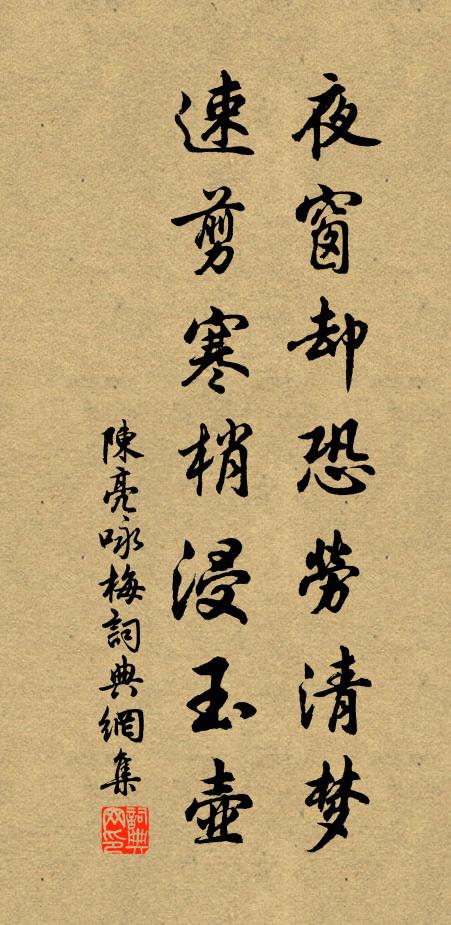 夜窗却恐勞清梦
速剪寒梢浸玉壺
陳亮咏梅詞典網集
詞典网印